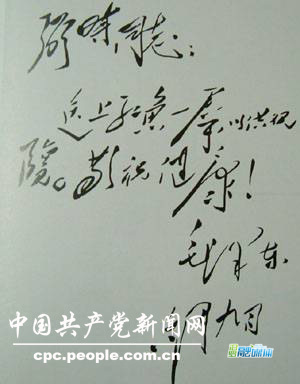 弼時同志：
送上红鱼一羣以供观
覽。敬祝健康！
毛泽东
月九日
中国共产党新闻网
cpc.people.com.cn